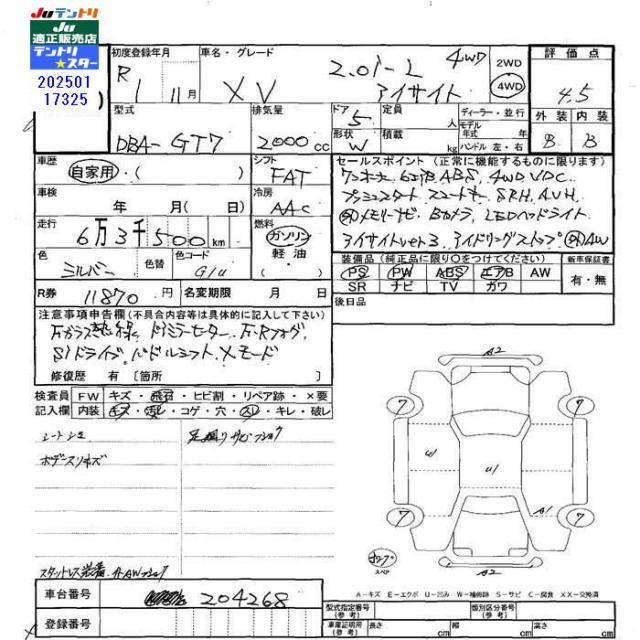 Juテントリ
Ju
適正販売店
テントリ
★スター
202501
17325
初度登録年月
車名・グレード
評価点
R 1 11月
XV
2.0i-L
4WD
アイサイト
2WD
4WD
4.5
外装 内装
B B
型式
DBA-GT7
排気量
2000cc
ドア
5
形状
W
定員
人
積載
kg
ディーラー・並行
モデル
年式 年
ハンドル 左・右
車歴
自家用・( )
シフト
FAT
車検
年 月(日)
冷房
AAC
走行
6万3千500km
燃料
ガソリン
軽油
( )
色
シルバー
色替
色コード
G1U
セールスポイント(正常に機能するものに限ります)
ABS, 4WD, VDC
プッシュスタート スマートキー, SRH, AVH,
メモリーナビ, Bカメラ, LEDヘッドライト
アイサイトver3, アイドリングストップ AW
装備品(純正品に限り○をつけてください)
新車保証書
PS PW ABS エアB AW
SR ナビ TV カワ
有・無
R券 11870円
名変期限 月 日
後日品
注意事項申告欄(不具合内容等は具体的に記入して下さい)
Fガラス熱線, ドアミラーヒーター, F・Rフォグ,
SIドライブ, パドルシフト, Xモード
修復歴 有〔箇所 〕
検査員
記入欄
FW キズ・飛石・ヒビ割・リペア跡・×要
内装 キズ・汚れ・コゲ・穴・スレ・キレ・破レ
シートシミ
足廻りサビ
ボデースリキズ
スタットレス装着
A2
7
7
U1
U1
A1
7
7
スペア
A2
A-キズ E-エクボ U-凹み W-補修跡 S-サビ C-腐食 XX-交換済
車台番号
204268
登録番号
型式指定番号
(参考)
類別区分番号
(参考)
車庫証明用
(参考)
長さ cm
幅 cm
高さ cm